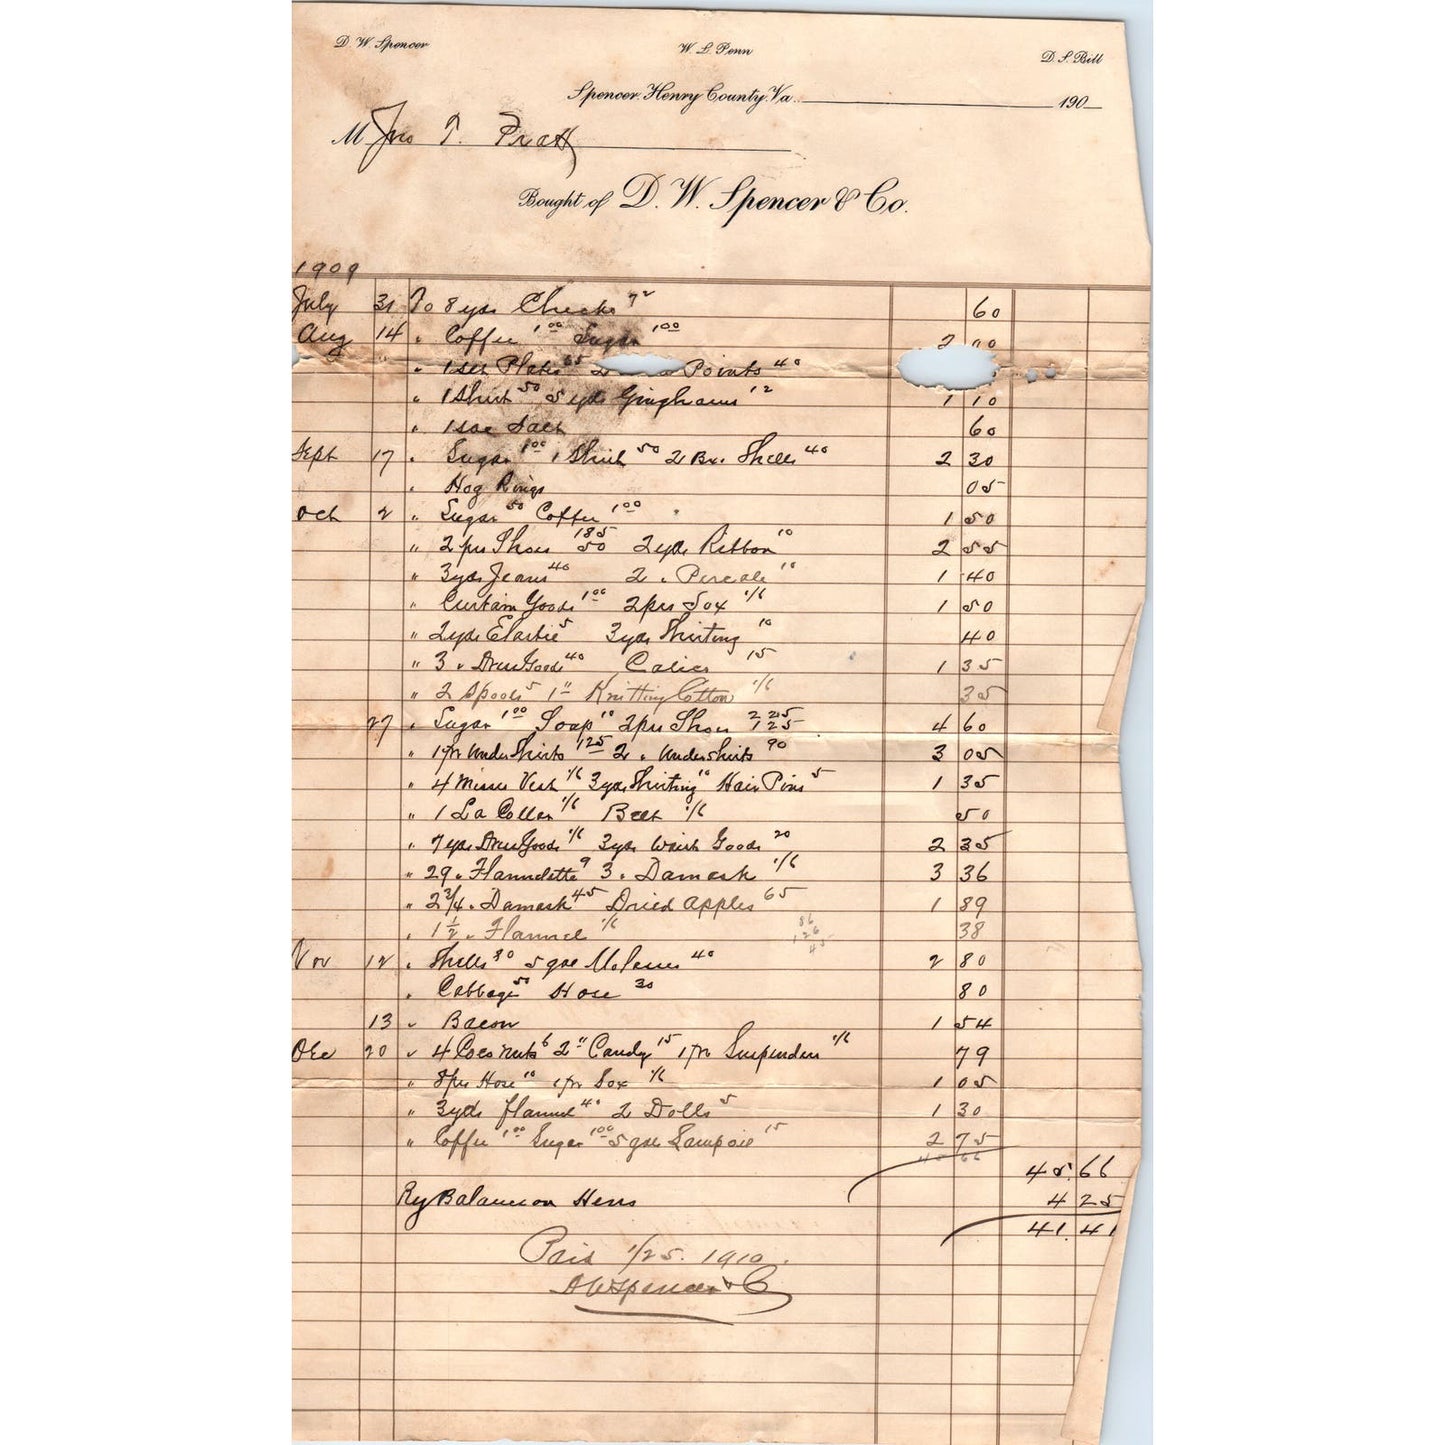 D. W. Spencer W. L. Penn D. S. Bill
Spencer, Henry County, Va. 190
M Jno T. Pratt
Bought of D. W. Spencer & Co.
1909
July 31 To 8 yds Checks 7½ 60
Aug 14 " Coffee 1.00 Sugar 1.00 2 00
" 1 set Plates 65 2 Points 40
" 1 Shirt 50 5 yds Ginghams 12 1 10
" 1 Sac Salt 60
Sept 17 " Sugar 1.00 1 Shirt 50 2 Bx. Shells 40 2 30
" Hog Rings 05
Oct 2 " Sugar 50 Coffee 1.00 1 50
" 2 prs Shoes 185 50 2 yds Ribbon 10 2 55
" 3 yds Jeans 40 2 " Percale 10 1 40
" Curtain Goods 1.00 2 prs Sox 1/6 1 50
" 2 yds Elastic 5 3 yds Shirting 10 40
" 3 " Dress Goods 40 Calico 15 1 35
" 2 Spools 5 1 " Knitting Cotton 1/6 35
27 " Sugar 1.00 Soap 10 2 prs Shoes 2 25 1 25 4 60
" 1 pr Under Shirts 125 2 " Undershirts 90 3 05
" 4 Misses Vest 1/6 3 yds Shirting 10 Hair Pins 5 1 35
" 1 La Collar 1/6 Belt 1/6 50
" 7 yds Dress Goods 1/6 3 yds Waist Goods 20 2 35
" 29 " Flannelette 9 3 " Damask 1/6 3 36
" 2 3/4 " Damask 45 Dried Apples 65 1 89
" 1 1/2 " Flannel 1/6 38
86
126
45
Nov 12 " Shells 80 5 gals Molasses 40 2 80
" Cabbage 50 Hose 30 80
13 " Bacon 1 54
Dec 20 " 4 Cocoanuts 6 2 " Candy 15 1 pr Suspenders 1/6 79
" 8 prs Hose 10 1 pr Sox 1/6 1 05
" 3 yds Flannel 40 2 Dolls 5 1 30
" Coffee 1.00 Sugar 1.00 5 gals Lamp oil 15 2 75
45.66
By Balance on Hens 4 25
41.41
Paid 1/25. 1910.
D W Spencer & Co